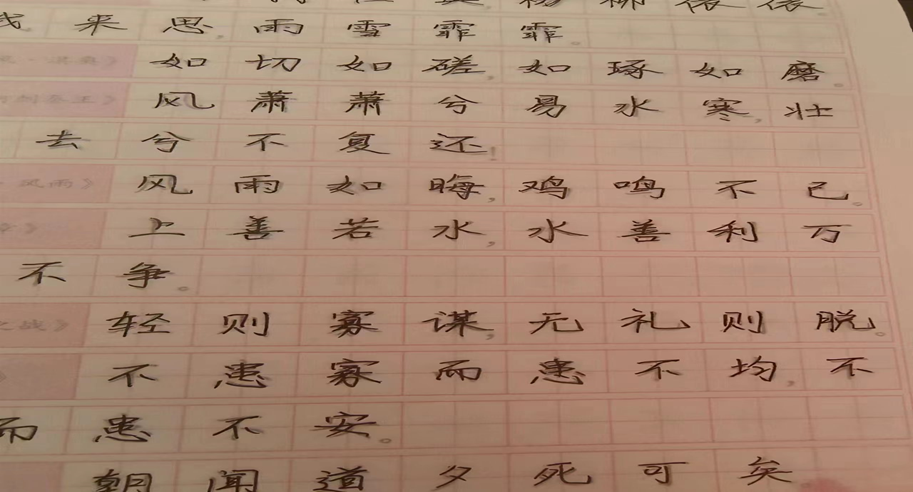 杨柳依依
来思，雨雪霏霏。
如切如磋，如琢如磨。
风萧萧兮易水寒，壮
去兮不复还！
风雨》 风雨如晦，鸡鸣不已。
上善若水，水善利万
不争。
之战》 轻则寡谋，无礼则脱。
不患寡而患不均，不
而患不安。
朝闻道夕死可矣